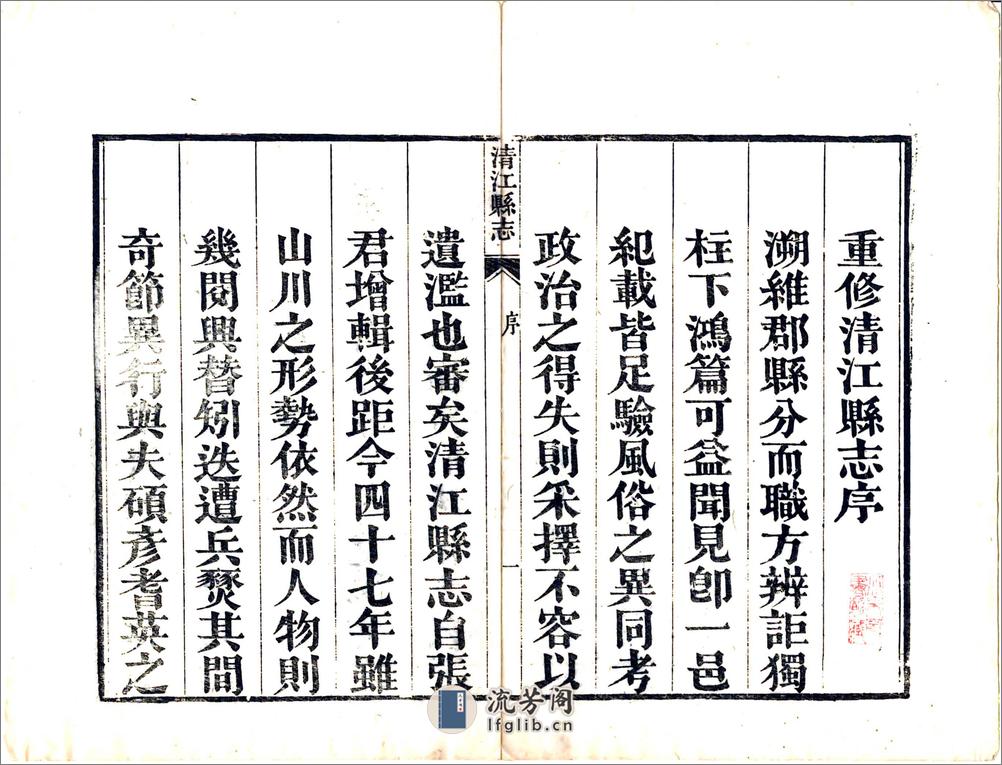 重修清江縣志序
溯維郡縣分而職方辨詎獨
柱下鴻篇可益聞見卽一邑
紀載皆足驗風俗之異同考
政治之得失則采擇不容以
清江縣志
序
一
遺濫也審矣清江縣志自張
君增輯後距今四十七年雖
山川之形勢依然而人物則
幾閱興替矧迭遭兵燹其間
奇節異行與夫碩彥耆英之
流芳阁
lfglib.cn